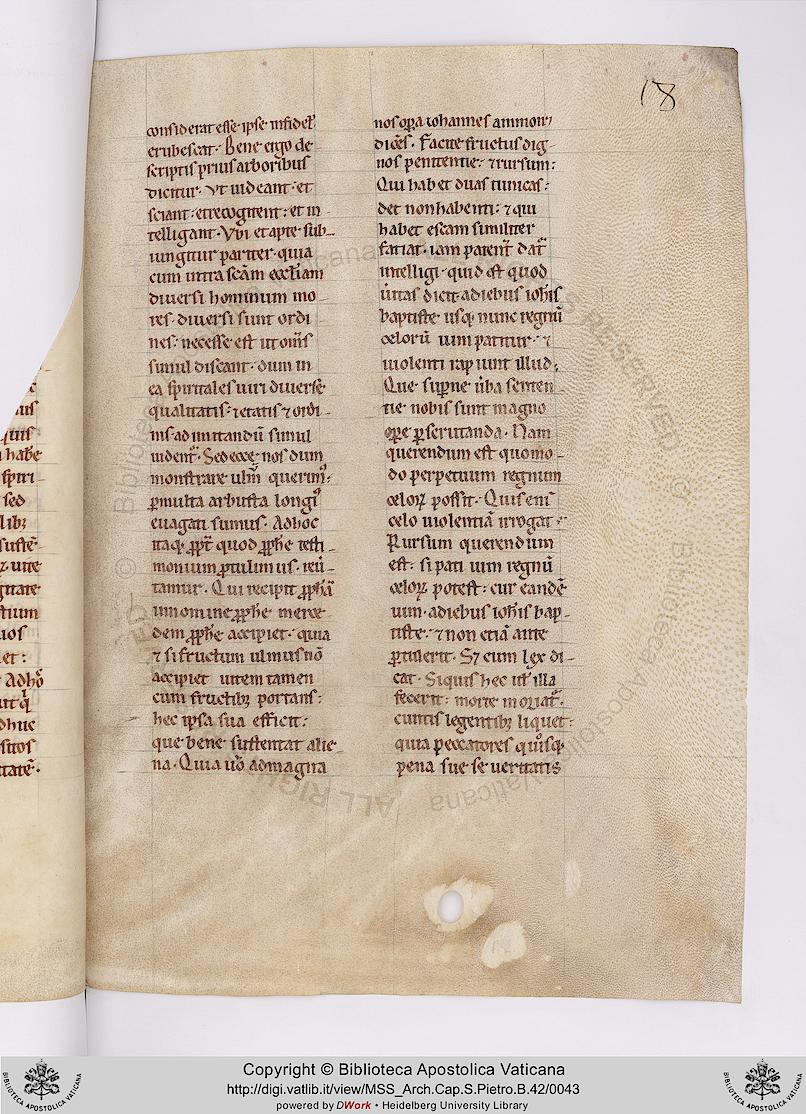 18
considerat esse ipse infidel᷎
erubescat. Bene ergo de
scriptis prius arboribus
dicitur. Ut uideant: et
sciant: et recogitent: et in
telligant. Ubi et apte sub
iungitur pariter. quia
cum intra scām eccl̄iam
diuersi hominum mo
res. diuersi sunt ordi
nes: necesse est ut om̄s
simul discant. dum in
ea spiritales uiri diuerse
qualitatis: ⁊ etatis ⁊ ordi
nis ad imitandū simul
uident᷑. Sed ecce nos dum
monstrare ulm̄ querim᷒:
ꝑ multa arbusta longi᷒
euagati sumus. Ad hoc
itaqꝫ ꝓpt̄ quod ꝓph̄e testi
monium ꝓtulimus. reū
tamur. Qui recipit ꝓph̄ā
in nomine ꝓph̄e merce
dem ꝓph̄e accipiet. quia
⁊ si fructum ulmus nō
accipiet uitem tamen
cum fructibꝫ portans:
hec ipsa sua efficit:
que bene sustentat alie
na. Quia ū̊ ad magna
nos oꝑa iohannes ammon᷑
dic̄es. Facite fructus dig
nos penitentie: ⁊ rursum:
Qui habet duas tunicas:
det non habenti: ⁊ qui
habet escam similiter
fatiat. iam patent̄ dat᷑
intelligi. quid est quod
ūitas dicit. a diebus ioh̄is
baptiste usqꝫ nunc regnū
celorū uim patitur. ⁊
uiolenti rapiunt illud:
Que suꝑne ūba senten
tie nobis sunt magno
oꝑe ꝑscrutanda. Nam
querendum est quomo
do perpetuum regnum
celoꝝ possit. Quis eni
celo uiolentiā irrogat:
Rursum querendum
est: si pati uim regnū
celoꝝ potest: cur eandē
uim. a diebus ioh̄is bap
tiste. ⁊ non etiā ante
ꝑtulerit. Sꝫ cum lex di
cat. Siquis hec ut̄ illa
fecerit: morte moriat᷑.
cunctis legentibꝫ liquet:
quia peccatores qůsqꝫ
pena sue seueritatis
Copyright © Biblioteca Apostolica Vaticana
http://digi.vatlib.it/view/MSS_Arch.Cap.S.Pietro.B.42/0043
powered by DWork • Heidelberg University Library